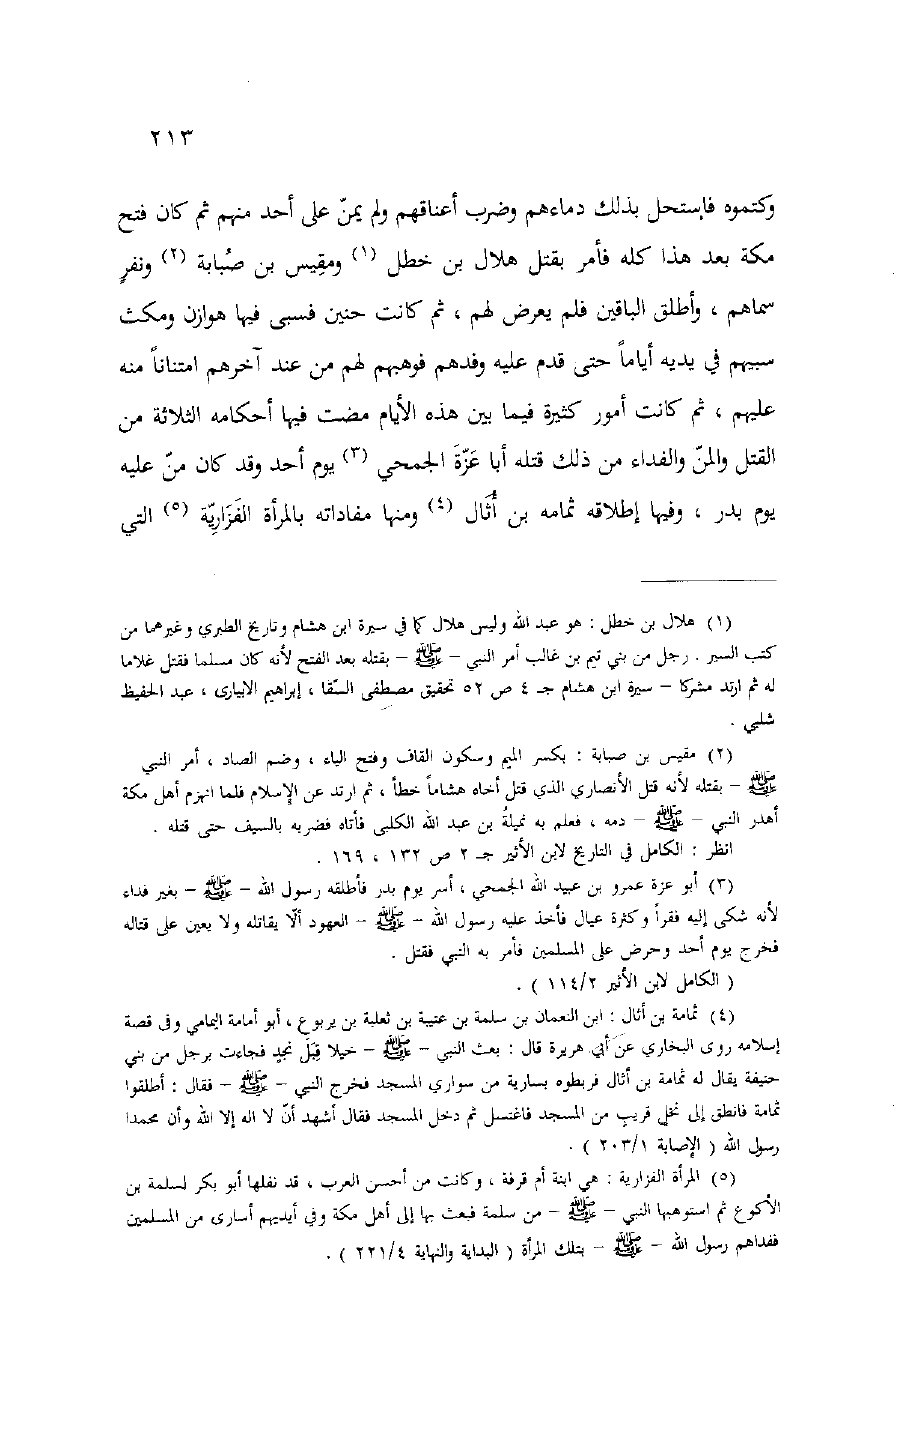 ٢١٣
وكتموه فاستحل بذلك دماءهم وضرب أعناقهم ولم يمنّ على أحد منهم ثم كان فتح
مكة بعد هذا كله فأمر بقتل هلال بن خطل (١) ومقيس بن صُبابة (٢) ونفرٍ
سماهم ، وأطلق الباقين فلم يعرض لهم ، ثم كانت حنين فسبى فيها هوازن ومكث
سبيهم في يديه أياماً حتى قدم عليه وفدهم فوهبهم لهم من عند آخرهم امتناناً منه
عليهم ، ثم كانت أمور كثيرة فيما بين هذه الأيام مضت فيها أحكامه الثلاثة من
القتل والمنّ والفداء من ذلك قتله أبا عَزّةَ الجمحي (٣) يوم أحد وقد كان منّ عليه
يوم بدر ، وفيها إطلاقه ثمامه بن أُثَال (٤) ومنها مفاداته بالمرأة الفَزَارِيّة (٥) التي
(١) هلال بن خطل : هو عبد الله وليس هلال كما في سيرة ابن هشام وتاريخ الطبري وغيرهما من
كتب السير . رجل من بني تيم بن غالب أمر النبي - ﷺ - بقتله بعد الفتح لأنه كان مسلما فقتل غلاما
له ثم ارتد مشركا - سيرة ابن هشام جـ ٤ ص ٥٢ تحقيق مصطفى السّقا ، إبراهيم الابيارى ، عبد الحفيظ
شلبي .
(٢) مقيس بن صبابة : بكسر الميم وسكون القاف وفتح الياء ، وضم الصاد ، أمر النبي
ﷺ - بقتله لأنه قتل الأنصاري الذي قتل أخاه هشاماً خطأ ، ثم ارتد عن الإسلام فلما انهزم أهل مكة
أهدر النبي - ﷺ - دمه ، فعلم به نميلةُ بن عبد الله الكلبى فأتاه فضربه بالسيف حتى قتله .
انظر : الكامل في التاريخ لابن الأثير جـ ٢ ص ١٣٢ ، ١٦٩ .
(٣) أبو عزة عمرو بن عبيد الله الجمحي ، أسر يوم بدر فأطلقه رسول الله - ﷺ - بغير فداء
لأنه شكى إليه فقراً وكثرة عيال فأخذ عليه رسول الله - ﷺ - العهود ألّا يقاتله ولا يعين على قتاله
فخرج يوم أحد وحرض على المسلمين فأمر به النبي فقتل .
( الكامل لابن الأثير ١١٤/٢ ) .
(٤) ثمامة بن أثال : ابن النعمان بن سلمة بن عتيبة بن ثعلبة بن يربوع ، أبو أمامة اليمامي وفى قصة
إسلامه روى البخاري عن أبي هريرة قال : بعث النبي - ﷺ - خيلا قِبَل نجد فجاءت برجل من بني
حنيفة يقال له ثمامة بن أثال فربطوه بسارية من سواري المسجد فخرج النبي - ﷺ - فقال : أطلقوا
ثمامة فانطق إلى نخلٍ قريبٍ من المسجد فاغتسل ثم دخل المسجد فقال أشهد أنّ لا اله إلا الله وأن محمدا
رسول الله ( الإصابة ٢٠٣/١ ) .
(٥) المرأة الفزارية : هي ابنة أم قرفة ، وكانت من أحسن العرب ، قد نفلها أبو بكر لسلمة بن
الأكوع ثم استوهبها النبي - ﷺ - من سلمة فبعث بها إلى أهل مكة وفي أيديهم أسارى من المسلمين
ففداهم رسول الله - ﷺ - بتلك المرأة ( البداية والنهاية ٢٢١/٤ ) .